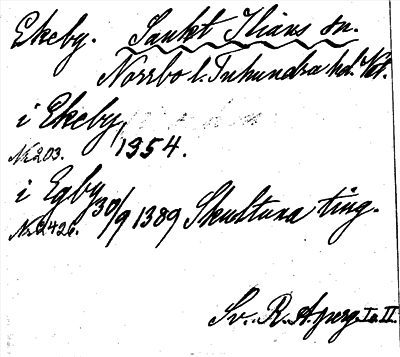 Ekeby. Sankt Ilians sn.
Norrbo l. Tuhundra hd. Vstm.
i Ekeby
Nr 203. 1354.
i Egby 30/9 1389 Skultuna ting.
Nr 2426.
Sv. R. A. perg. I o. II.